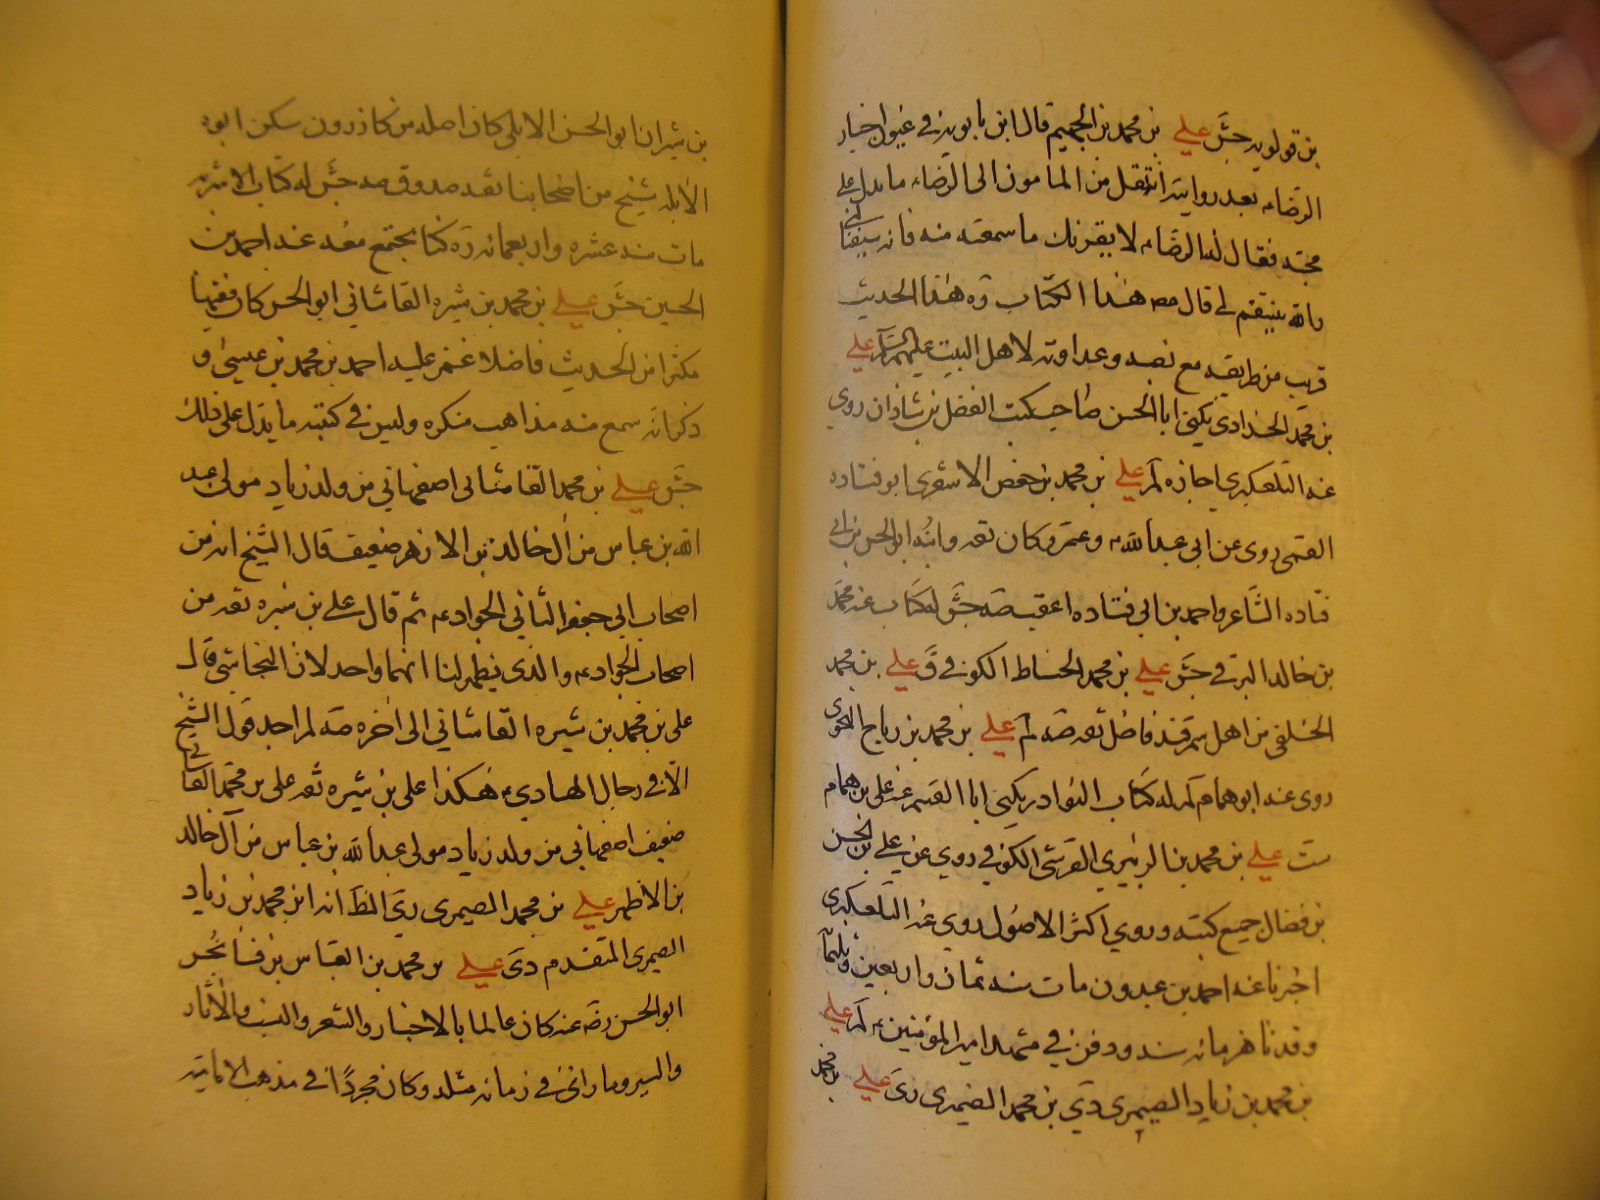 بن قولويه جش علي بن محمد بن الجهيم قال ابن بابويه في عيون اخبار
الرضاء بعد رواية انتقل من المامون الى الرضاء ما يدل على
محبته فقال له الرضاء لا يغرنك ما سمعته منه فانه سيقتلني
والله ينتقم لي قال مص هذا الكتاب ره هذا الحديث
غريب من طريقه مع نصبه وعداوته لاهل البيت عليهم السلام علي
بن محمد الحدادي يكنى ابا الحسن صاحب كتب الفضل بن شاذان روى
عنه التلعكبري اجازه لم علي بن محمد بن حفص الاشعري ابو قتاده
القمي روى عن ابي عبد الله وعمر وكان ثقه وابنه ابو الحسن بن ابي
قتاده الشاعر واحمد بن ابي قتاده اعقب صه جش له كتاب عنه محمد
بن خالد البرقي جش علي بن محمد الحناط الكوفي ق علي بن محمد
الخلفي من اهل سمرقند فاضل ثقه صه لم علي بن محمد بن رباح النحوي
روى عنه ابو همام لم له كتاب النوادر يكنى ابا القسم عنه علي بن همام
ست علي بن محمد بن الزبيري القرشي الكوفي روى عن علي بن الحسن
بن فضال جميع كتبه وروى اكثر الاصول روى عنه التلعكبري
اخبرنا عنه احمد بن عبدون مات سنه ثمان واربعين وثلثمائة
وقد ناهز مائه سنه ودفن في مشهد امير المؤمنين لم علي
بن محمد بن زياد الصيمري دي بن محمد الصيمري ري علي بن محمد
بن شيران ابو الحسن الابلي كان اصله من كازرون سكن ابوه
الابله شيخ من اصحابنا ثقه صدوق صه جش له كتاب الاشربه
مات سنه عشره واربعمائه ره كنا نجتمع معه عند احمد بن
الحسين جش علي بن محمد بن شيره القاشاني ابو الحسن كان فقيها
مكثرا من الحديث فاضلا غمز عليه احمد بن محمد بن عيسى و
ذكر انه سمع منه مذاهب منكره وليس في كتبه ما يدل على ذلك
جش علي بن محمد القاشاني اصفهاني من ولد زياد مولى عبد
الله بن عباس من آل خالد بن الازهر ضعيف قال الشيخ انه من
اصحاب ابي جعفر الثاني الجواد ثم قال علي بن شيره ثقه من
اصحاب الجواد والذي يظهر لنا انهما واحد لان النجاشي قال
علي بن محمد بن شيره القاشاني الى آخره صه لم اجد قول الشيخ
الا في رجال الهادي هكذا علي بن شيره ثقه علي بن محمد القاشاني
ضعيف اصفهاني من ولد زياد مولى عبد الله بن عباس من آل خالد
بن الازهر علي بن محمد الصيمري ري الظ انه ابن محمد بن زياد
الصيمري المتقدم دي علي بن محمد بن العباس بن فسانجس
ابو الحسن رضه عنه كان عالما بالاخبار والشعر والنسب والآثار
والسير وما رائى في زمانه مثله وكان مجردا في مذهب الاماميه